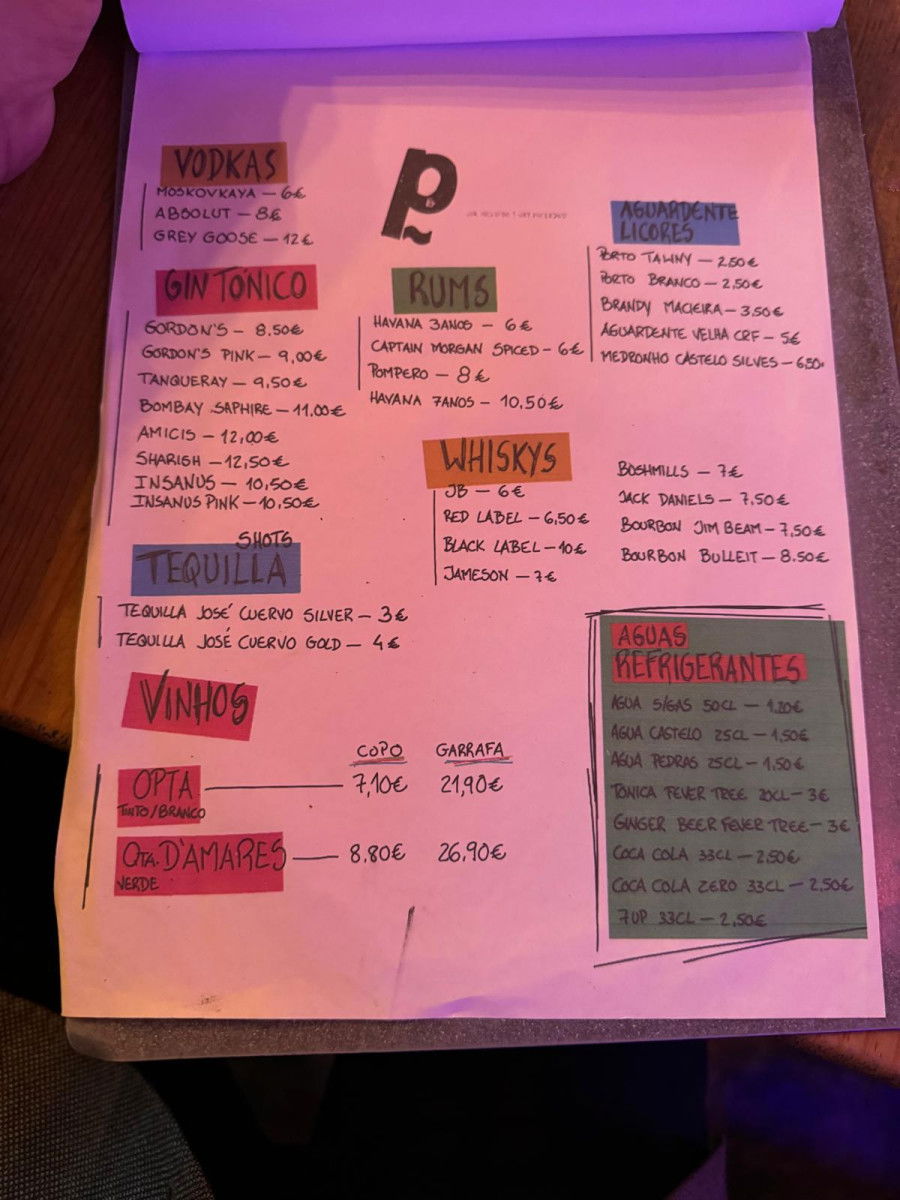 VODKAS
MOSKOVKAYA — 6€
ABSOLUT — 8€
GREY GOOSE — 12€
GIN TÓNICO
GORDON'S — 8.50€
GORDON'S PINK — 9,00€
TANQUERAY — 9,50€
BOMBAY SAPHIRE — 11.00€
AMICIS — 12,00€
SHARISH — 12,50€
INSANUS — 10,50€
INSANUS PINK — 10,50€
SHOTS
TEQUILLA
TEQUILLA JOSÉ CUERVO SILVER — 3€
TEQUILLA JOSÉ CUERVO GOLD — 4€
RUMS
HAVANA 3ANOS — 6€
CAPTAIN MORGAN SPICED — 6€
POMPERO — 8€
HAVANA 7ANOS — 10,50€
AGUARDENTE
LICORES
PORTO TAWNY — 2,50€
PORTO BRANCO — 2,50€
BRANDY MACIEIRA — 3,50€
AGUARDENTE VELHA CRF — 5€
MEDRONHO CASTELO SILVES — 6,50€
WHISKYS
JB — 6€
RED LABEL — 6,50€
BLACK LABEL — 10€
JAMESON — 7€
BOSHMILLS — 7€
JACK DANIELS — 7,50€
BOURBON JIM BEAM — 7,50€
BOURBON BULLEIT — 8.50€
VINHOS
COPO GARRAFA
OPTA — 7,10€ 21,90€
TINTO/BRANCO
QTA. D'AMARES — 8,80€ 26,90€
VERDE
AGUAS
REFRIGERANTES
AGUA S/GAS 50CL — 1,20€
AGUA CASTELO 25CL — 1,50€
AGUA PEDRAS 25CL — 1,50€
TONICA FEVER TREE 20CL — 3€
GINGER BEER FEVER TREE — 3€
COCA COLA 33CL — 2,50€
COCA COLA ZERO 33CL — 2,50€
7UP 33CL — 2,50€